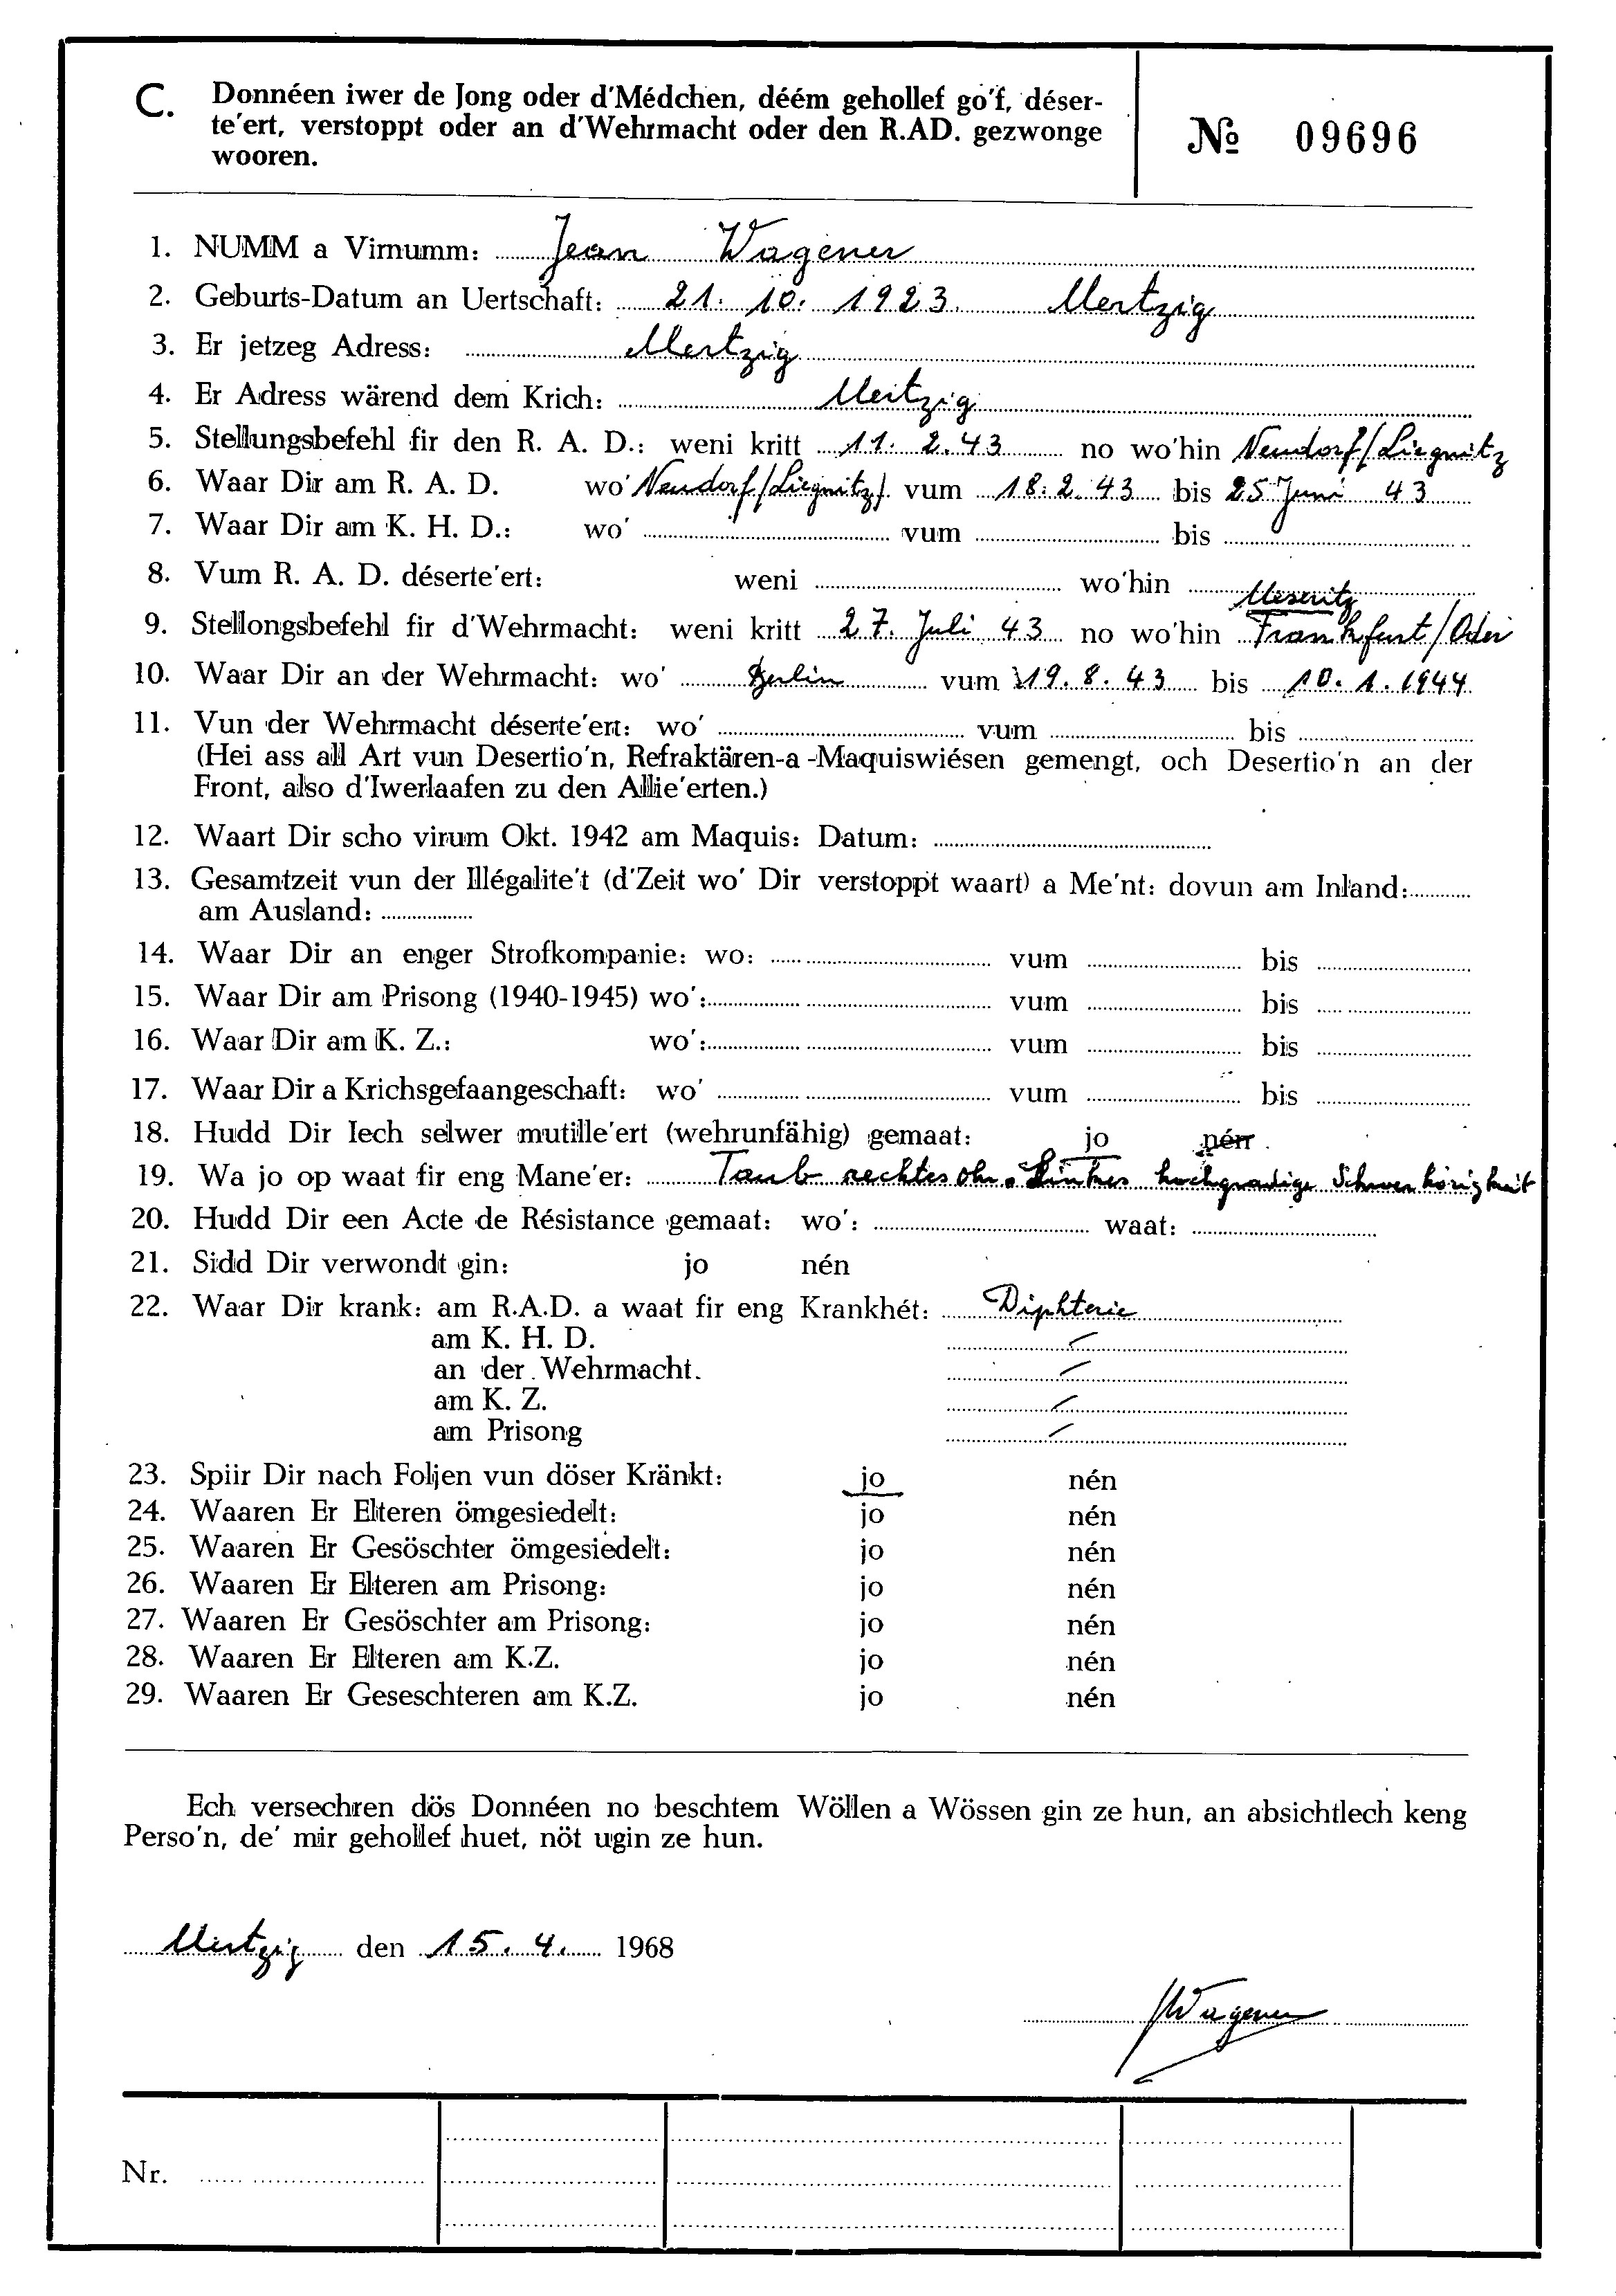 C. Donnéen iwer de Jong oder d'Médchen, déém gehollef go'f, déser-
te'ert, verstoppt oder an d'Wehrmacht oder den R.AD. gezwonge
wooren.
№ 09696
1. NUMM a Virnumm: Jean Wagener
2. Geburts-Datum an Uertschaft: 21. 10. 1923. Mertzig
3. Er jetzeg Adress: Mertzig
4. Er Adress wärend dem Krich: Mertzig
5. Stellungsbefehl fir den R. A. D.: weni kritt 11. 2. 43 no wo'hin Neudorf/Liegnitz
6. Waar Dir am R. A. D. wo' Neudorf/Liegnitz/. vum 18. 2. 43 bis 25 Juni 43
7. Waar Dir am K. H. D.: wo' vum bis
8. Vum R. A. D. déserte'ert: weni wo'hin
Meseritz
9. Stellongsbefehl fir d'Wehrmacht: weni kritt 27. Juli 43 no wo'hin Frankfurt/Oder
10. Waar Dir an der Wehrmacht: wo' Berlin vum 19. 8. 43 bis 10. 1. 1944
11. Vun der Wehrmacht déserte'ert: wo' vum bis
(Hei ass all Art vun Desertio'n, Refraktären-a-Maquiswiésen gemengt, och Desertio'n an der
Front, also d'Iwerlaafen zu den Allie'erten.)
12. Waart Dir scho virum Okt. 1942 am Maquis: Datum:
13. Gesamtzeit vun der Illégalite't (d'Zeit wo' Dir verstoppt waart) a Me'nt: dovun am Inland:
am Ausland:
14. Waar Dir an enger Strofkompanie: wo: vum bis
15. Waar Dir am Prisong (1940-1945) wo': vum bis
16. Waar Dir am K. Z.: wo': vum bis
17. Waar Dir a Krichsgefaangeschaft: wo' vum bis
18. Hudd Dir Iech selwer mutille'ert (wehrunfähig) gemaat: jo nén
19. Wa jo op waat fir eng Mane'er: Taub rechtes ohr. Linkes hochgradige Schwerhörigkeit
20. Hudd Dir een Acte de Résistance gemaat: wo': waat:
21. Sidd Dir verwondt gin: jo nén
22. Waar Dir krank: am R.A.D. a waat fir eng Krankhét: Diphterie
am K. H. D.
an der Wehrmacht.
am K. Z.
am Prisong
23. Spiir Dir nach Foljen vun döser Kränkt: jo nén
24. Waaren Er Elteren ömgesiedelt: jo nén
25. Waaren Er Gesöschter ömgesiedelt: jo nén
26. Waaren Er Elteren am Prisong: jo nén
27. Waaren Er Gesöschter am Prisong: jo nén
28. Waaren Er Elteren am K.Z. jo nén
29. Waaren Er Geseschteren am K.Z. jo nén
Ech versechren dös Donnéen no beschtem Wöllen a Wössen gin ze hun, an absichtlech keng
Perso'n, de' mir gehollef huet, nöt ugin ze hun.
Mertzig den 15. 4. 1968
JWagener
Nr.